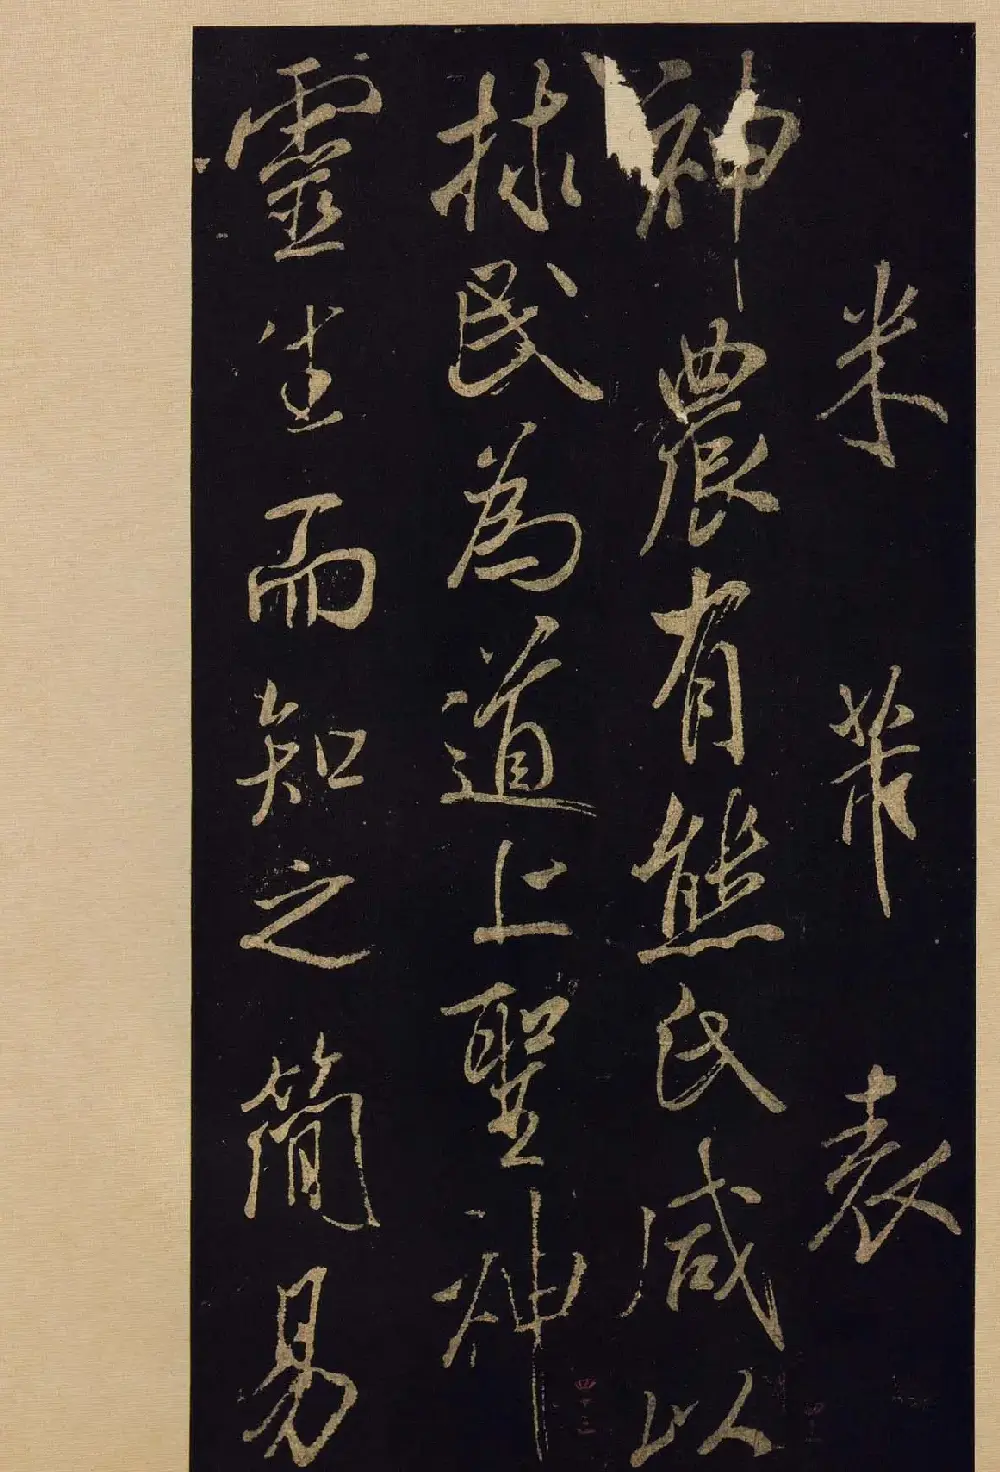 米芾表
神農有熊氏咸以
捄民為道上聖神
靈生而知之簡易
四十三